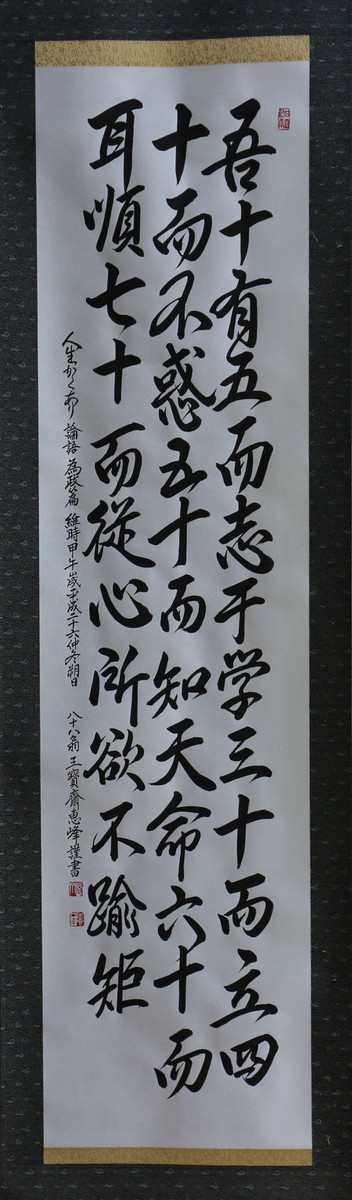 吾十有五而志于学三十而立四
十而不惑五十而知天命六十而
耳順七十而従心所欲不踰矩
人生かくあり 論語 為政篇 維時甲午歳平成二十六仲冬朔日
八十八翁 三寶齋惠峰謹書